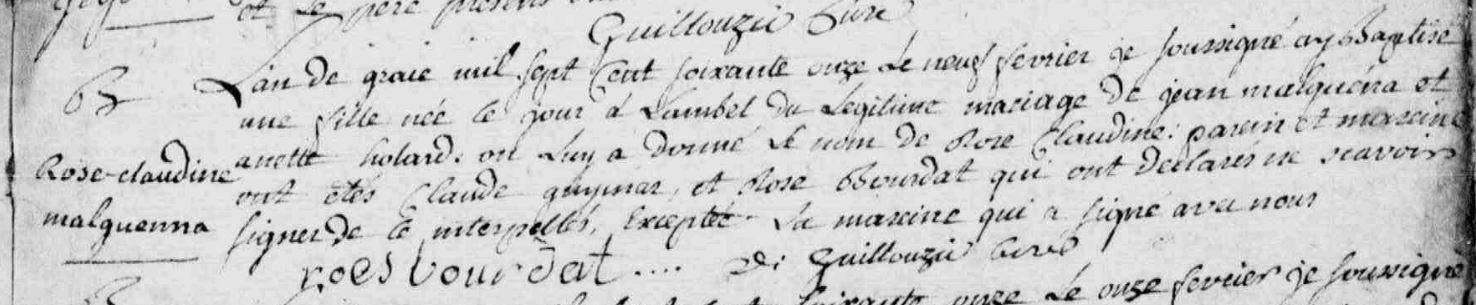 et Le pere presens
Guillouzic Curé
B Lan de grace mil sept Cent soixante onze Le neuf fevrier je soussigné ay Baptisé
une fille née ce jour à Lambel du Legitime mariage de jean malquéna et
anette holard. on Luy a donné Le nom de Rose Claudine: parein et mareine
Rose-claudine
ont etés Claude guymar, et Rose Bourdat qui ont declarés ne scavoir
malquenna
signer de ce interpellés, Exceptée La mareine qui a signé avec nous
roes bourdat .... Guillouzic Curé
soixante onze Le onze fevrier je soussigné